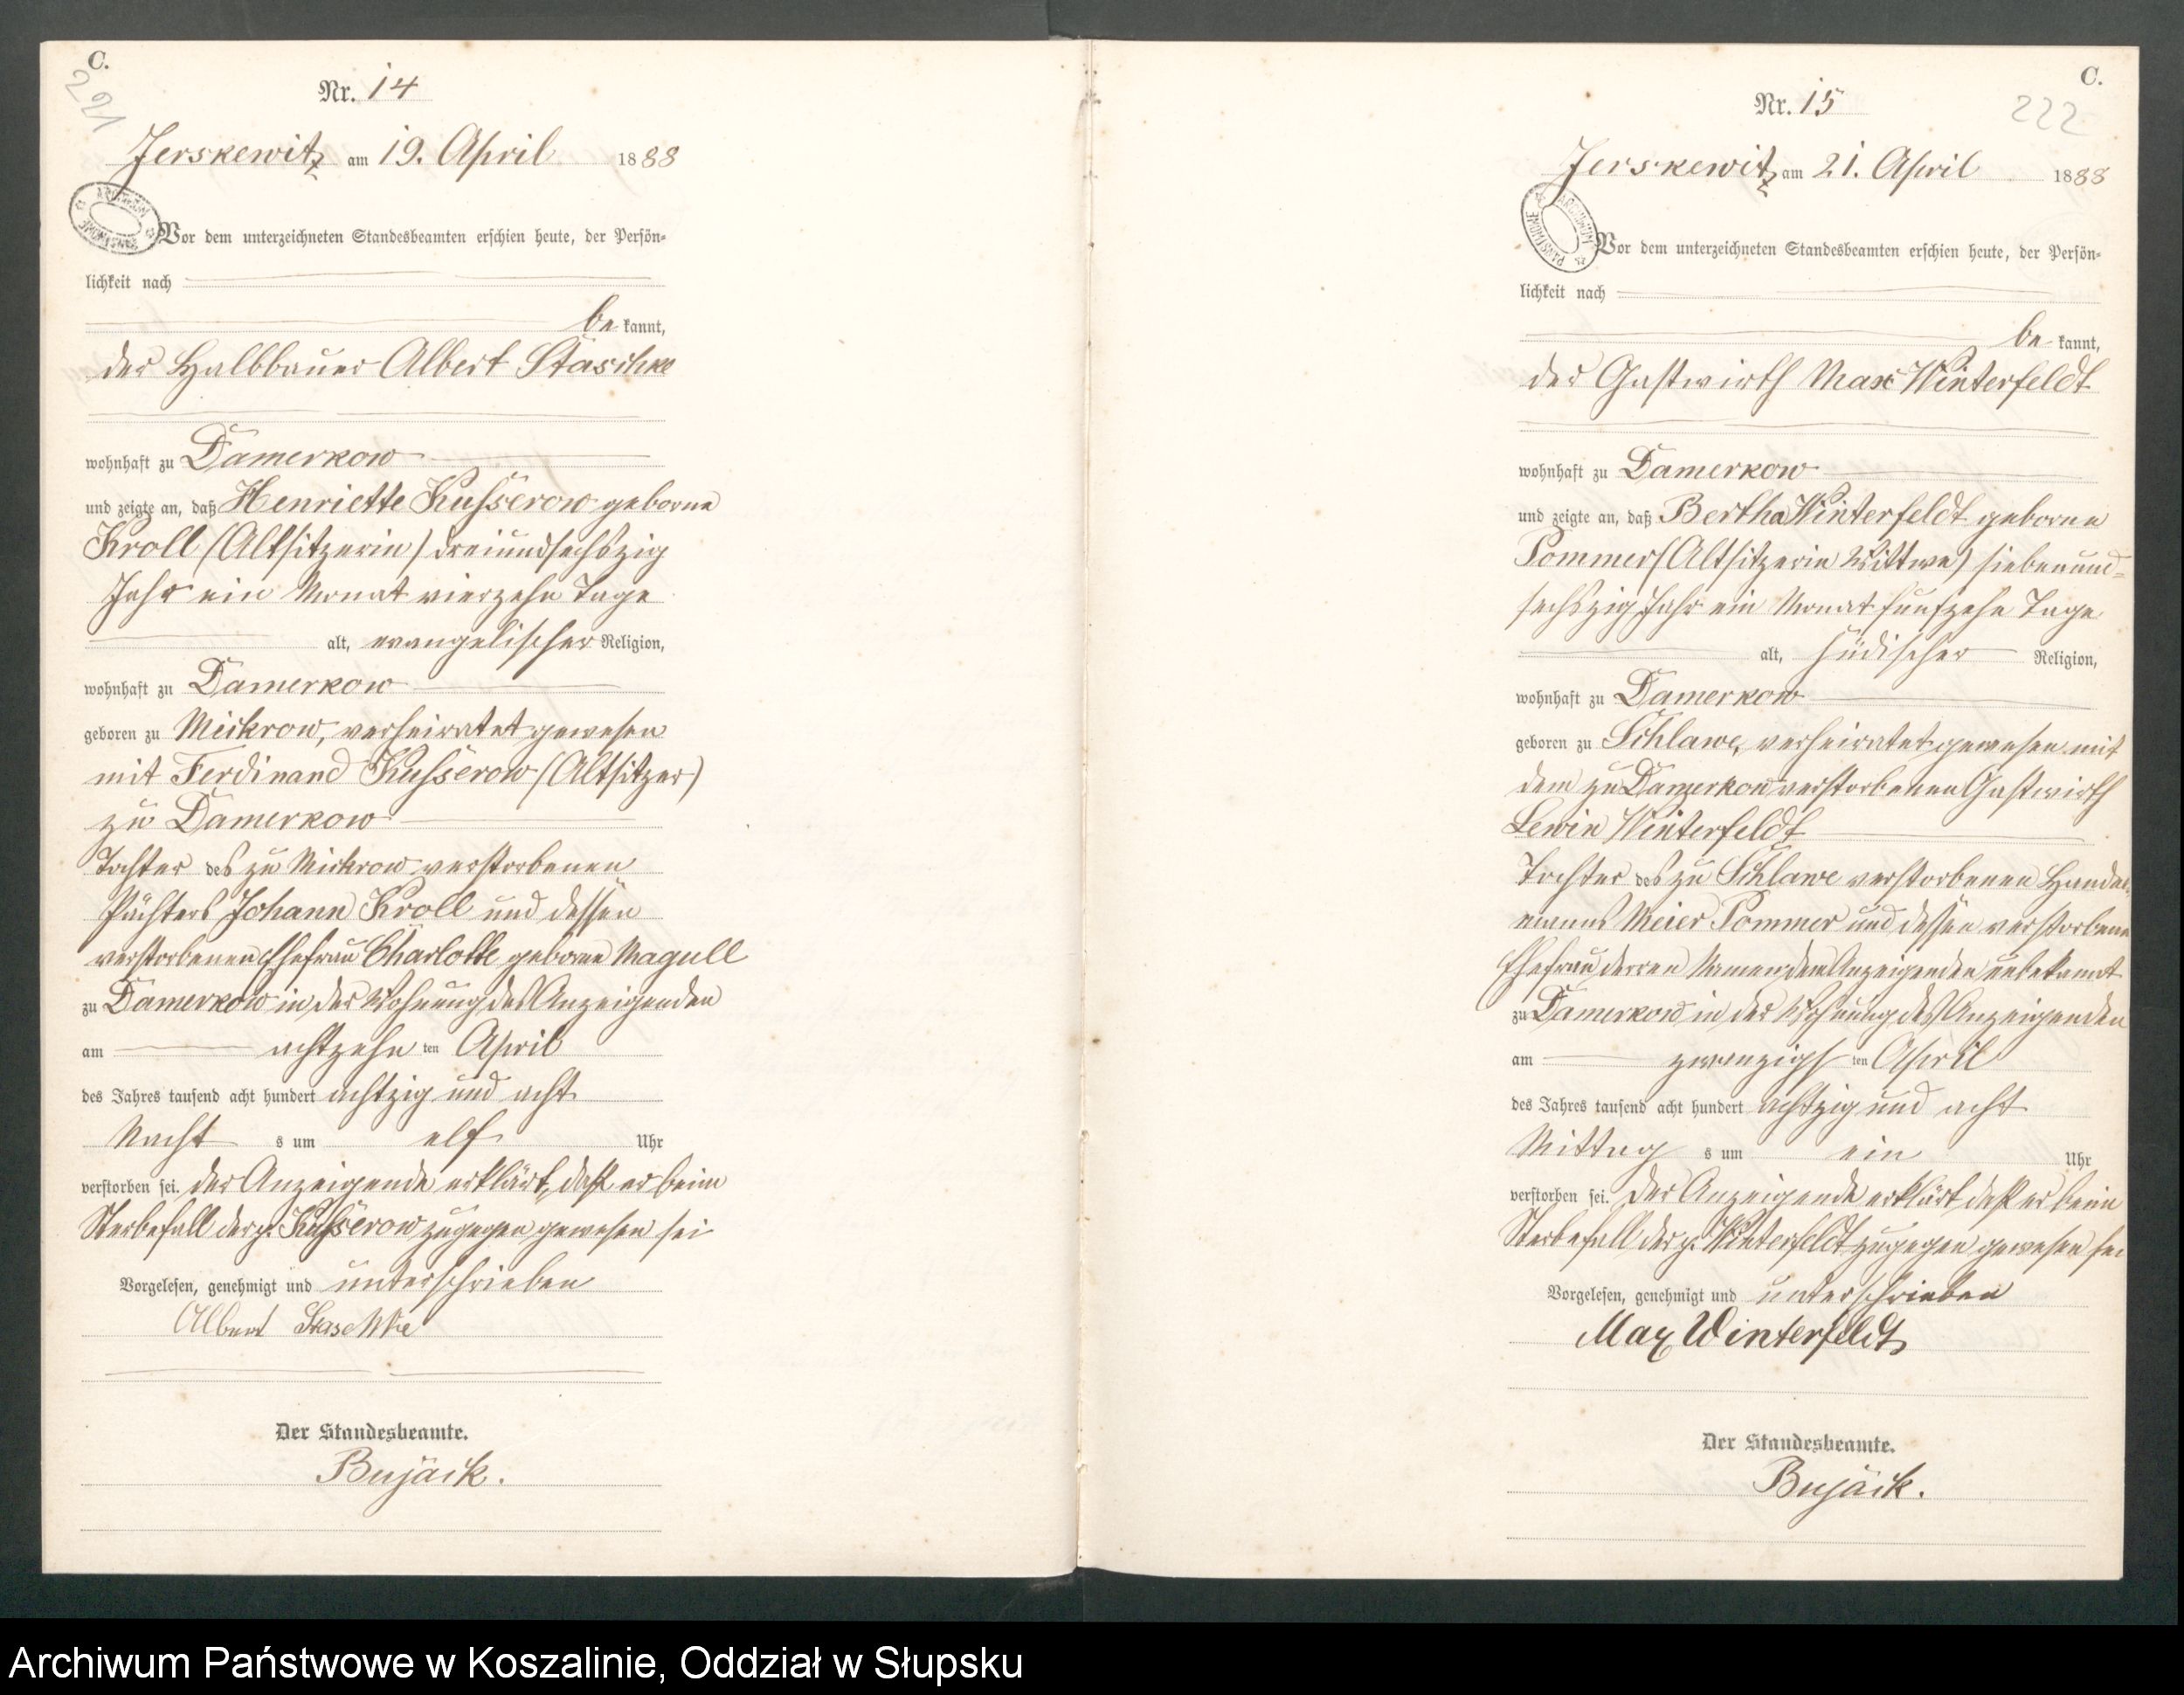 C.
221
Nr. 14
Jerskewitz am 19. April 1888
ARCHIWUM PAŃSTWOWE
Vor dem unterzeichneten Standesbeamten erschien heute, der Persön-
lichkeit nach
be kannt,
der Halbbauer Albert Staschke
wohnhaft zu Damerkow
und zeigte an, daß Henriette Kusserow geborne
Kroll (Altsitzerin) dreiundsechszig
Jahr ein Monat vierzehn Tage
alt, evangelischer Religion,
wohnhaft zu Damerkow
geboren zu Mickrow, verheiratet gewesen
mit Ferdinand Kusserow (Altsitzer)
zu Damerkow
Tochter des zu Mickrow verstorbenen
Pächters Johann Kroll und dessen
verstorbenen Ehefrau Charlotte geborne Magull
zu Damerkow in der Wohnung des Anzeigenden
am achtzehn ten April
des Jahres tausend acht hundert achtzig und acht
Nacht s um elf Uhr
verstorben sei. Der Anzeigende erklärt, daß er beim
Sterbefall der p. Kusserow zugegen gewesen sei
Vorgelesen, genehmigt und unterschrieben
Albert Staschke
Der Standesbeamte.
Bujäck.
C.
222
Nr. 15
Jerskewitz am 21. April 1888
ARCHIWUM PAŃSTWOWE
Vor dem unterzeichneten Standesbeamten erschien heute, der Persön-
lichkeit nach
be kannt,
der Gastwirth Max Winterfeldt
wohnhaft zu Damerkow
und zeigte an, daß Bertha Winterfeldt geborne
Pommer (Altsitzerin Wittwe) siebenund-
sechszig Jahr ein Monat funfzehn Tage
alt, jüdischer Religion,
wohnhaft zu Damerkow
geboren zu Schlawe, verheiratet gewesen mit
dem zu Damerkow verstorbenen Gastwirth
Lewin Winterfeldt
Tochter des zu Schlawe verstorbenen Handels-
manns Meier Pommer und dessen verstorbene
Ehefrau derren Namen dem Anzeigenden unbekannt
zu Damerkow in der Wohnung des Anzeigenden
am zwanzigs ten April
des Jahres tausend acht hundert achtzig und acht
Mittag s um ein Uhr
verstorben sei. Der Anzeigende erklärt daß er beim
Sterbefall der p. Winterfeldt zugegen gewesen sei
Vorgelesen, genehmigt und unterschrieben
Max Winterfeldt
Der Standesbeamte.
Bujäck.
Archiwum Państwowe w Koszalinie, Oddział w Słupsku